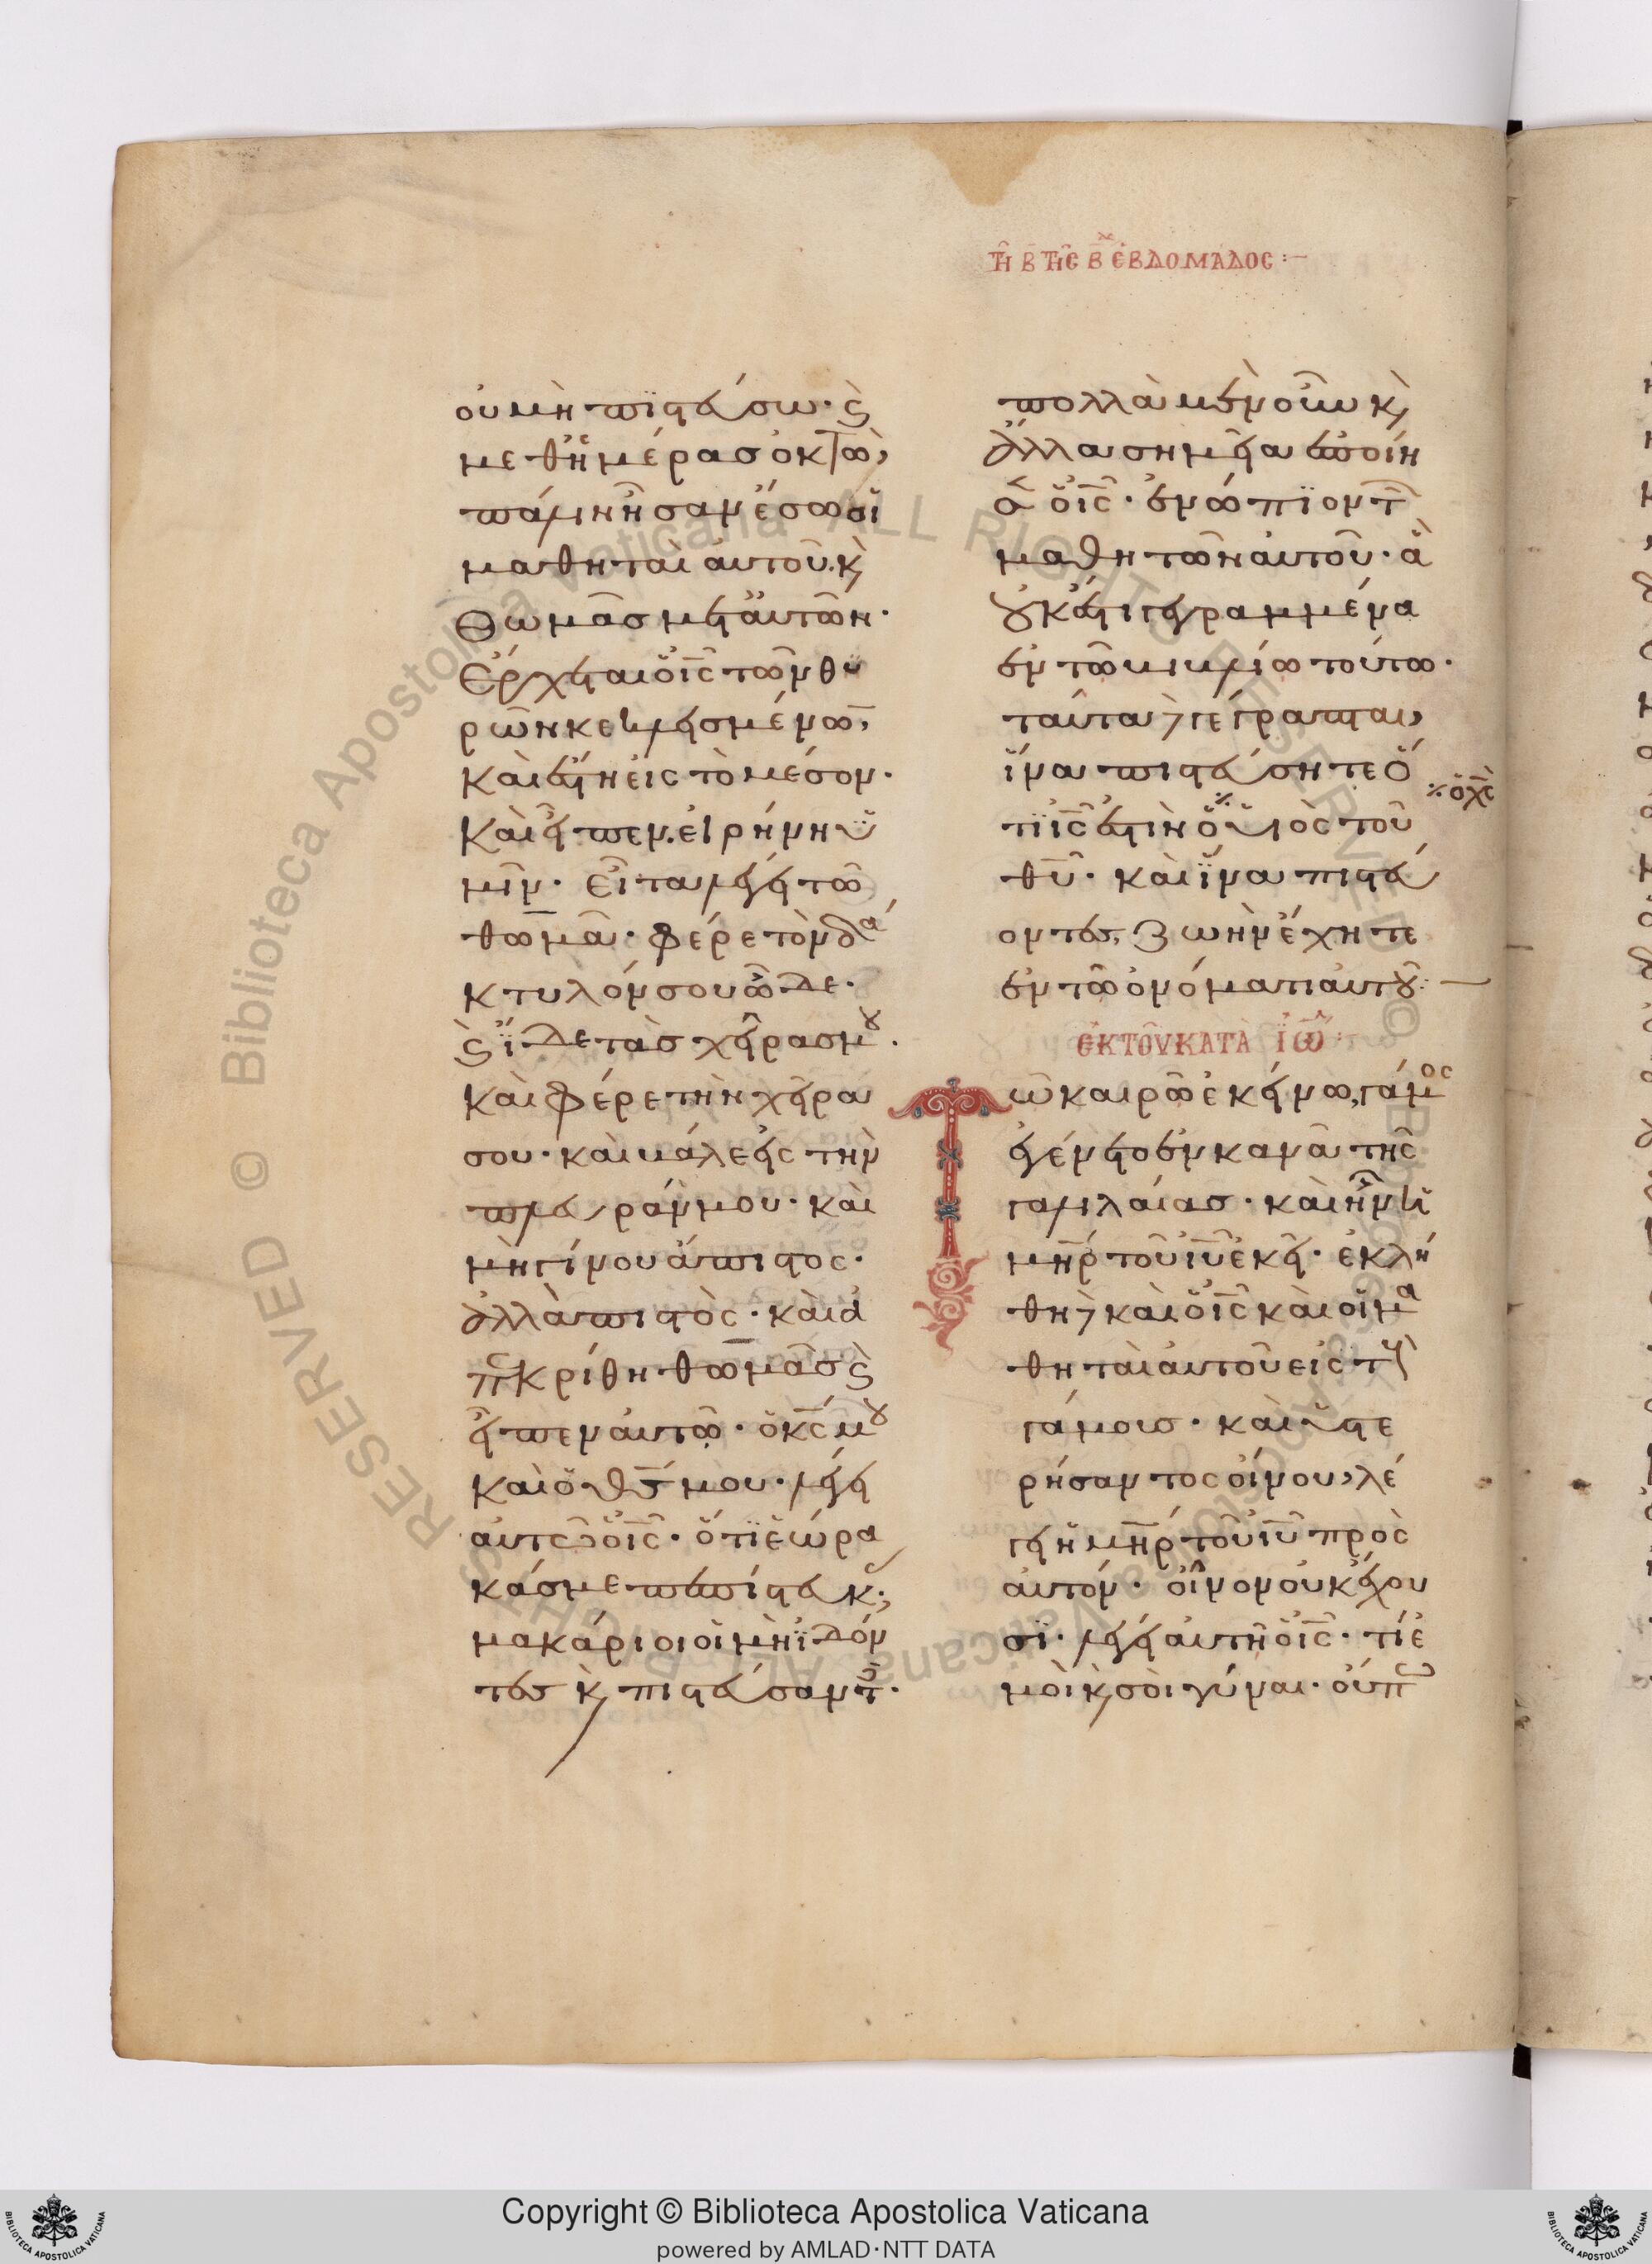 τῆ β τῆς β ἑβδομάδος :—
οὐ μὴ πϊστεύσω · ϗ
μεθ' ἡμέρασ ὀκτὼ,
πάλιν ἦσαν ἔσω οἱ
μαθηταὶ αὐτοῦ. ϗ
θωμᾶσ μετ' αὐτῶν ·
ἔρχεται ὁ ις τῶν θυ
ρῶν κεκλεισμένων,
καὶ ἔστη εἰς τὸ μέσον ·
καὶ εἶπεν. εἰρήνη ὑ
μῖν · εἶτα λέγει τῶ
θωμᾶ · φέρε τὸν δά
κτυλόν σου ὧδε ·
ϗ ἴδε τὰσ χεῖρασ μου .
καὶ φέρε τὴν χεῖρα
σου · καὶ βάλε εἰς τὴν
πλευράν μου · καὶ
μὴ γίνου ἄπιστος ·
ἀλλὰ πιστὸς · καὶ ἀ
πεκρίθη θωμᾶσ ϗ
εἶπεν αὐτῶ · ὁ κς μου
καὶ ὁ θς μου · λέγει
αὐτῶ ὁ ις · ὅτϊ ἑώρα
κάσ με πεπίστευκας;
μακάριοι οἱ μὴ ἰδόν
τες ϗ πιστεύσαντες ·
πολλὰ μὲν οὖν ϗ
ἄλλα σημεῖα ἐποίη
σεν ὁ ις · ἐνώπϊον τῶν
μαθητῶν αὐτοῦ · ἃ
οὐκ ἔστι γεγραμμένα
ἐν τῶ βιβλίω τούτω ·
ταῦτα δὲ γέγραπται,
ἵνα πιστεύσητε ὅ
τϊ ις ἐστὶν ὁ υἱὸς τοῦ
⁒ ὁ χς
θυ · καὶ ἵνα πιστεύ
οντες, ζωὴν ἔχητε
ἐν τῶ ὀνόματι αὐτοῦ :—
ἐκ τοῦ κατὰ ἰω
Τῶ καιρῶ ἐκείνω, γάμος
ἐγένετο ἐν κανᾶ τῆς
γαλιλαίασ · καὶ ἦν ἡ
μηρ τοῦ ιυ ἐκεῖ · ἐκλή
θη δὲ καὶ ὁ ις καὶ οἱ μα
θηταὶ αὐτοῦ εἰς τοὺς
γάμουσ · καὶ ὑστε
ρήσαντος οἴνου, λέ
γει ἡ μηρ τοῦ ιυ πρὸς
αὐτόν · οἶνον οὐκ ἔχου
σϊ · λέγει αὐτῆ ὁ ις · τί ἐ
μοὶ ϗ σοὶ γύναι · οὔπω